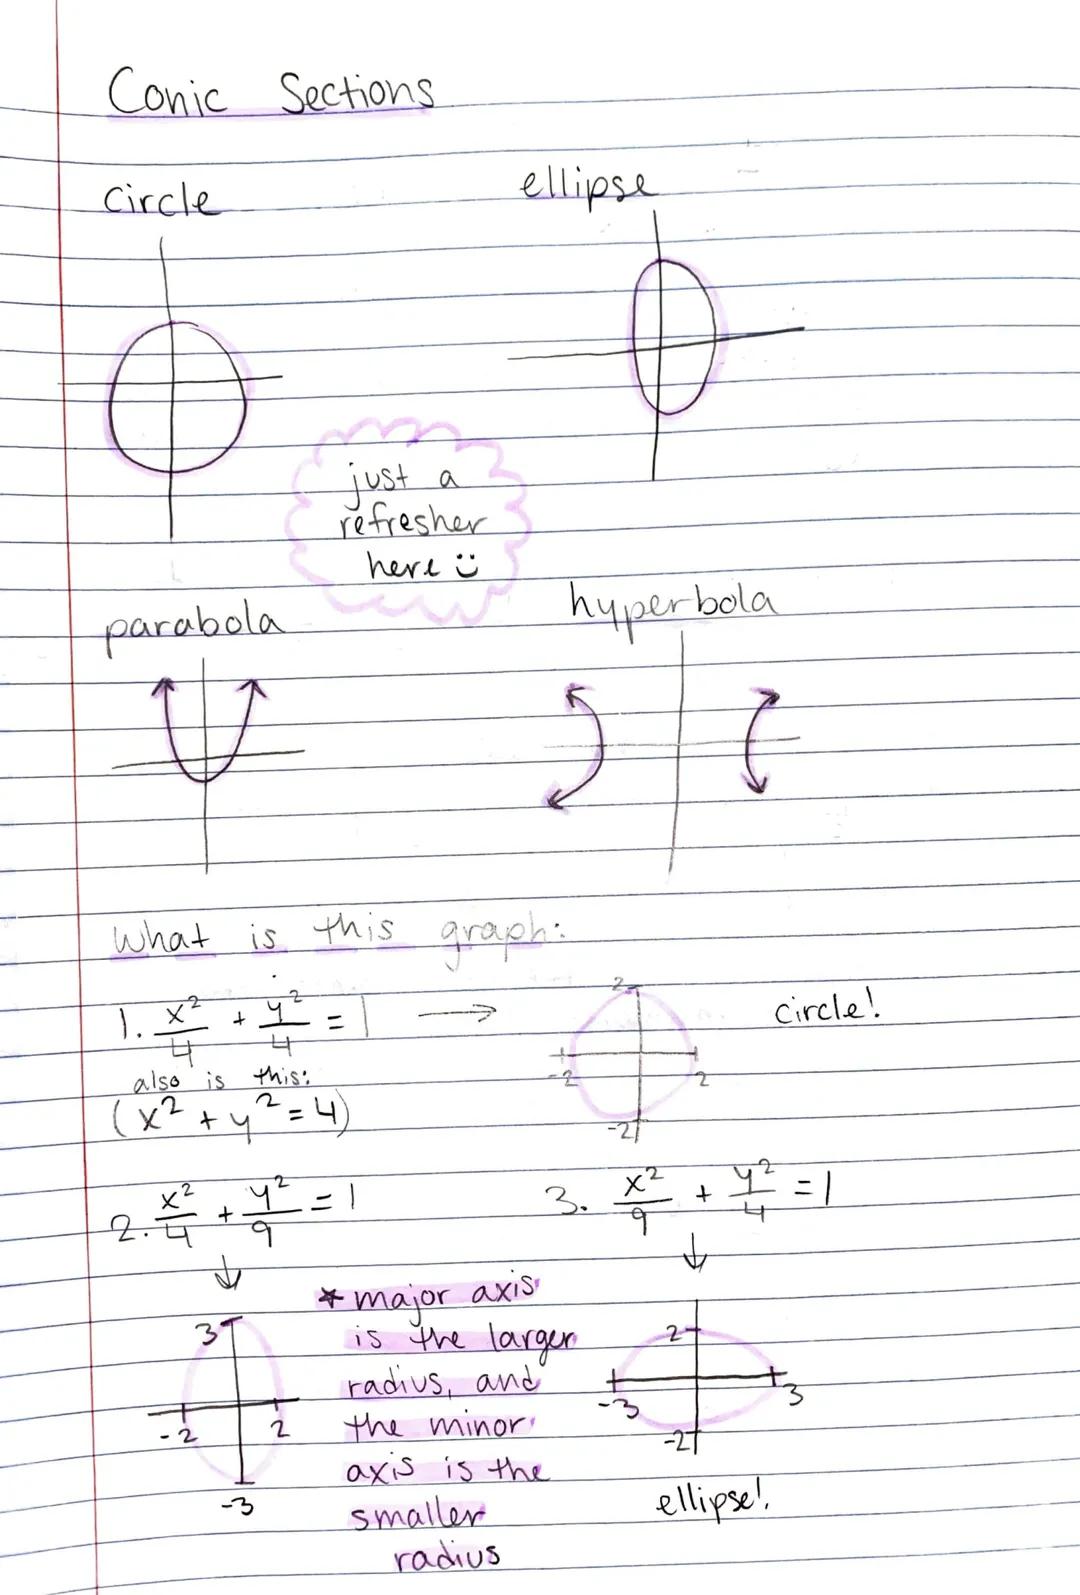 Conic Sections
circle
ellipse
just a
refresher
here
parabola
hyperbola
What is this graph:
1. x²/4 + y²/4 = 1 →
also is this:
(x² + y² = 4)
2
-2
2
-2
circle!
2. x²/4 + y²/9 = 1
↓
3
-2
2
-3
* major axis
is the larger
radius, and
the minor
axis is the
smaller
radius
3. x²/9 + y²/4 = 1
↓
2
-3
3
-2
ellipse!